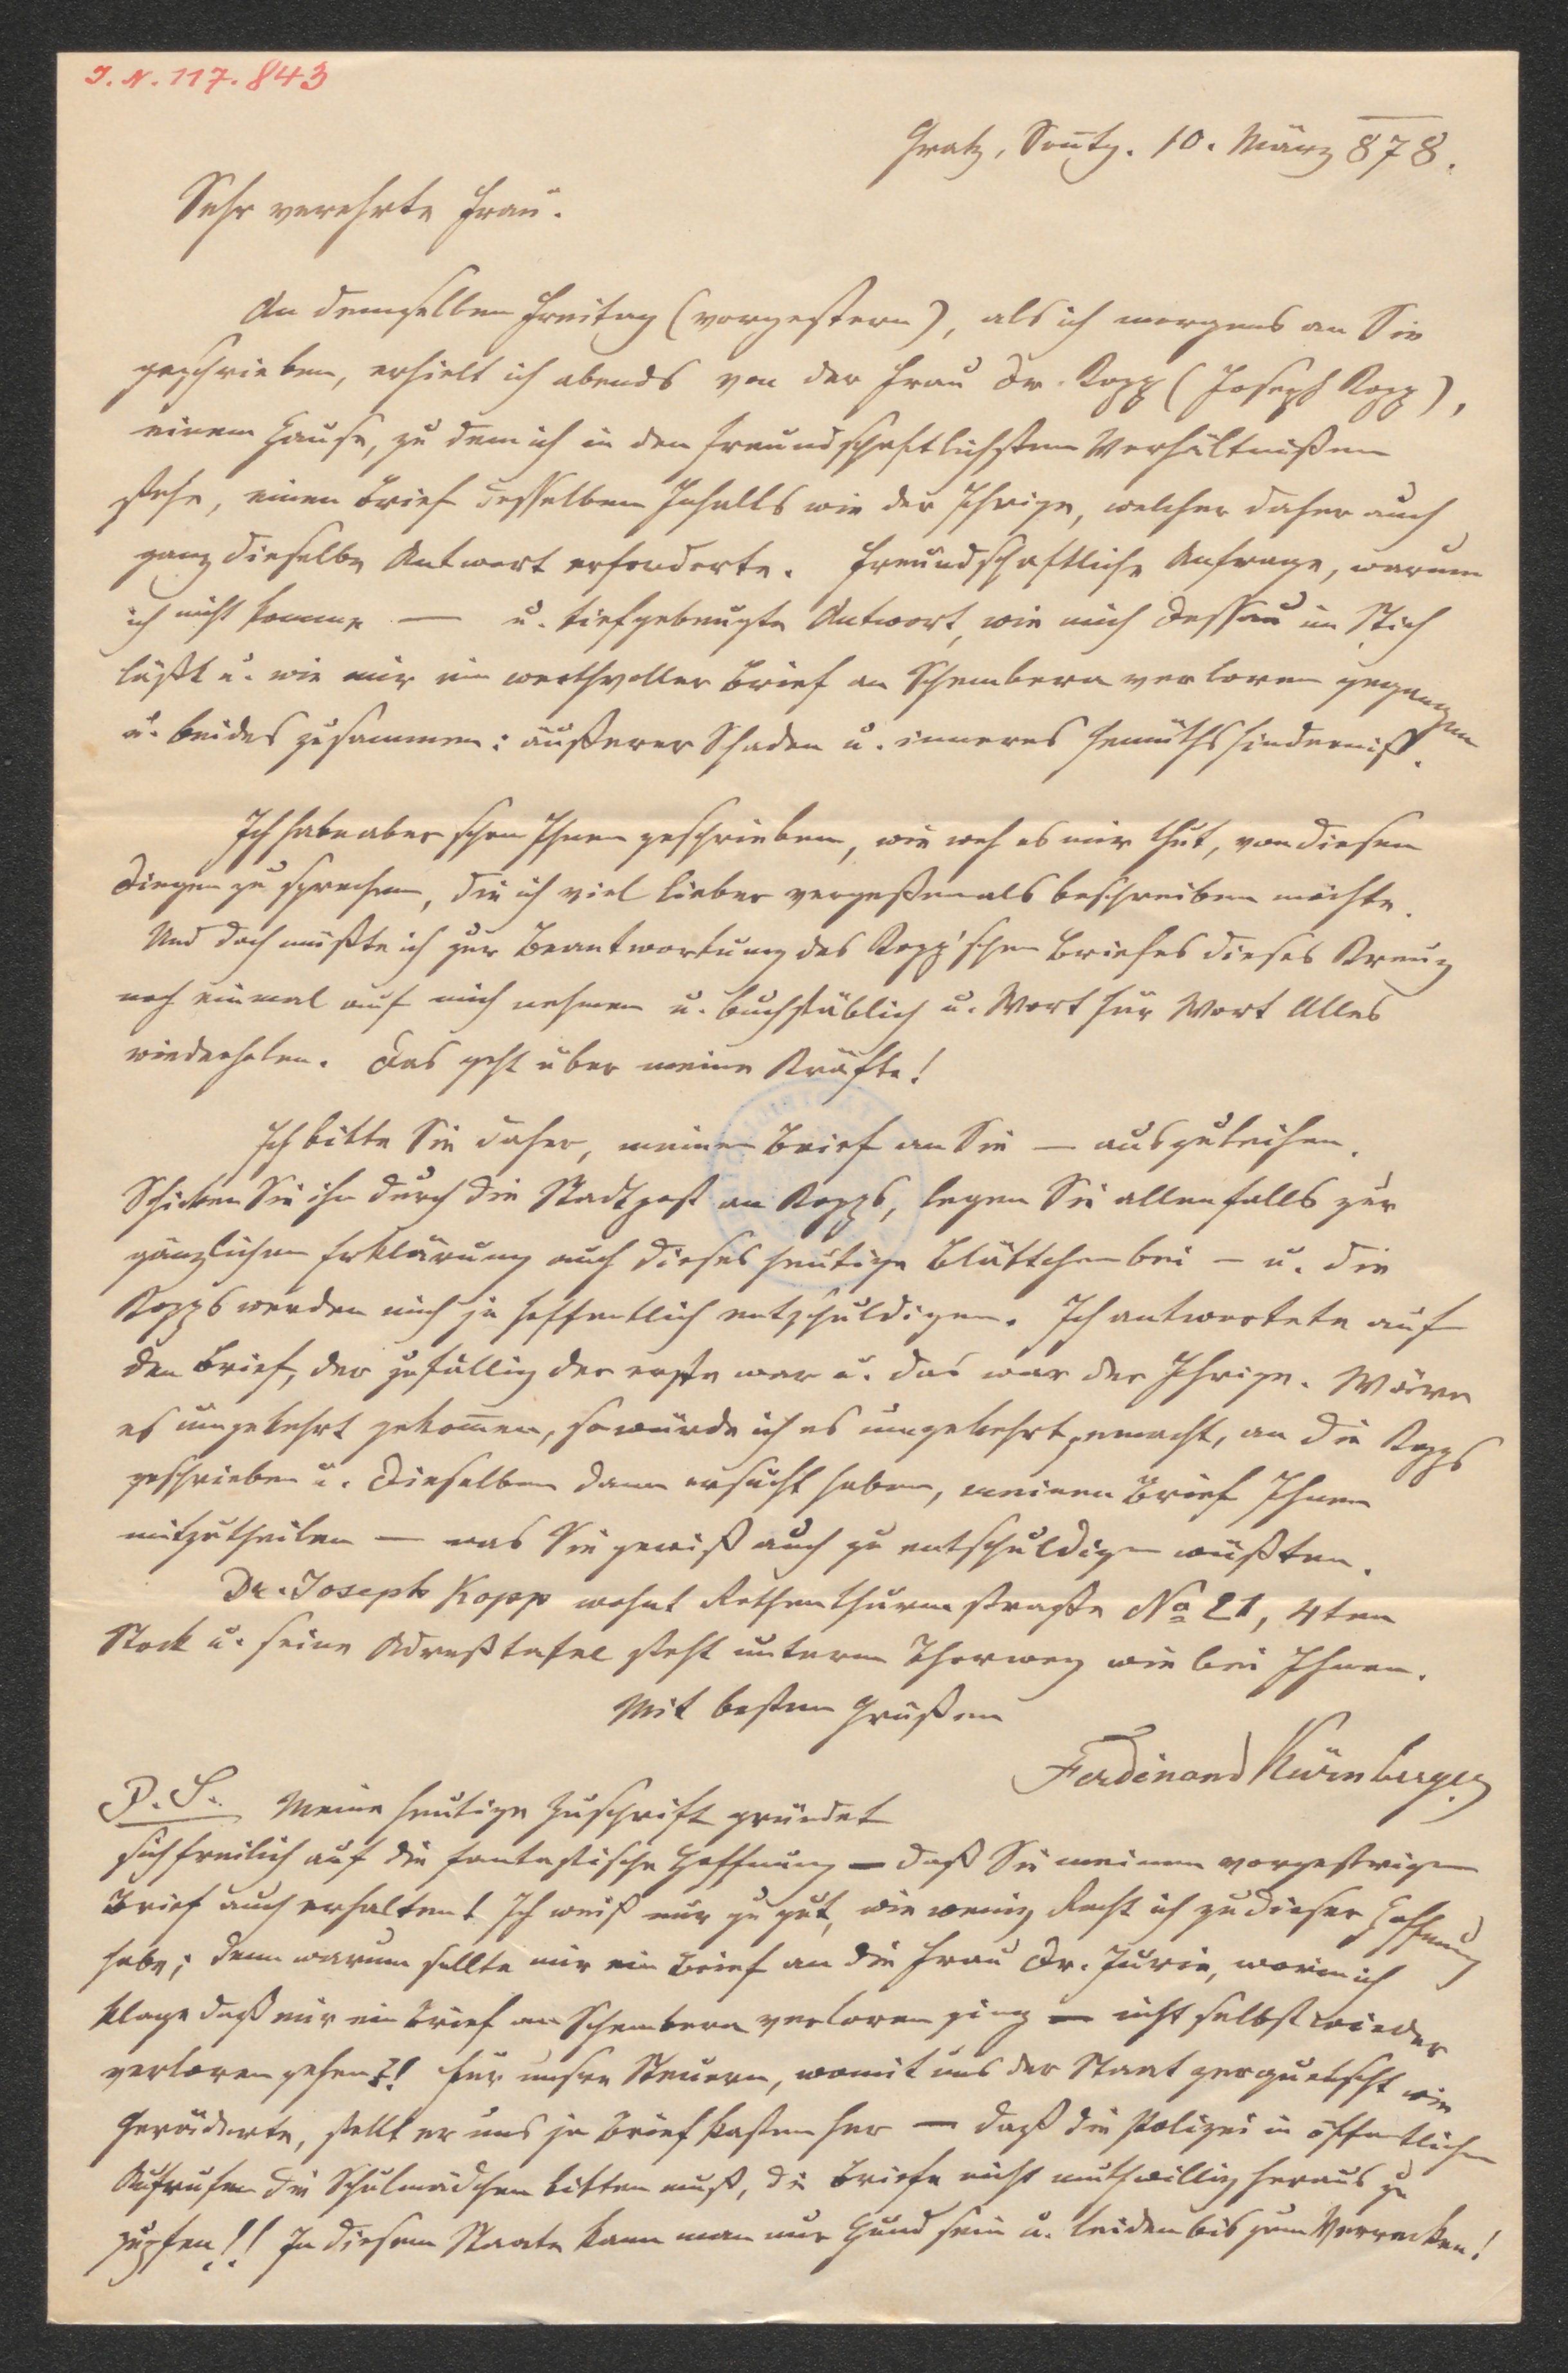 I. N. 117.843
Gratz, Sonntg. 10. März 878.
Sehr verehrte Frau.
An demselben Freitag (vorgestern), als ich morgens an Sie
geschrieben, erhielt ich abends von der Frau Dr. Kopp (Joseph Kopp),
einem Hause, zu dem ich in den freundschaftlichsten Verhältnißen
stehe, einen Brief desselben Inhalts wie der Ihrige, welcher daher auch
ganz dieselbe Antwort erforderte. Freundschaftliche Anfrage, warum
ich nicht komme — u. tiefgebeugte Antwort, wie mich Dessau im Stich
läßt u. wie mir ein werthvoller Brief an Schembera verloren gegangen
u. beides zusammen: äußerer Schaden u. inneres Gemüthshinderniß.
Ich habe aber schon Ihnen geschrieben, wie weh es mir thut, von diesen
Dingen zu sprechen, die ich viel lieber vergeßen als beschreiben möchte.
Und doch müßte ich zur Beantwortung des Kopp'schen Briefes dieses Kreuz
noch einmal auf mich nehmen u. buchstäblich u. Wort für Wort Alles
wiederholen. Das geht über meine Kräfte!
Ich bitte Sie daher, meinen Brief an Sie — auszuleihen.
Schicken Sie ihn durch die Stadtpost an Kopps, legen Sie allenfalls zur
gänzlichen Erklärung auch dieses heutige Blättchen bei – u. die
Kopps werden mich ja hoffentlich entschuldigen. Ich antwortete auf
den Brief, der zufällig der erste war u. das war der Ihrige. Wäre
es umgekehrt gekommen, so würde ich es umgekehrt gemacht, an die Kopps
geschrieben u. Dieselben dann ersucht haben, meinen Brief Ihnen
mitzutheilen — was Sie gewiß auch zu entschuldigen wüßten.
Dr. Joseph Kopp wohnt Rothenthurmstraße No 21, 4ten
Stock u. seine Adreßtafel steht unterm Thorweg wie bei Ihnen.
Mit besten Grüßen
Ferdinand Kürnberger
P. S. Meine heutige Zuschrift gründet
sich freilich auf die fantastische Hoffnung — daß Sie meinen vorgestrigen
Brief auch erhalten! Ich weiß nur zu gut, wie wenig Recht ich zu dieser Hoffnung
habe; denn warum sollte mir ein Brief an die Frau Dr. Jurie, worin ich
klage daß mir ein Brief an Schembera verloren ging — nicht selbst wieder
verloren gehen?! Für unsre Steuern, womit uns der Staat zerquetscht wie
Geräderte, stellt er uns ja Briefkasten her — daß die Polizei in öffentlichen
Aufrufen die Schulmädchen bitten muß, die Briefe nicht muthwillig heraus zu
zupfen!! In diesem Staate kann man nur Hund sein u. leiden bis zum Verrecken!